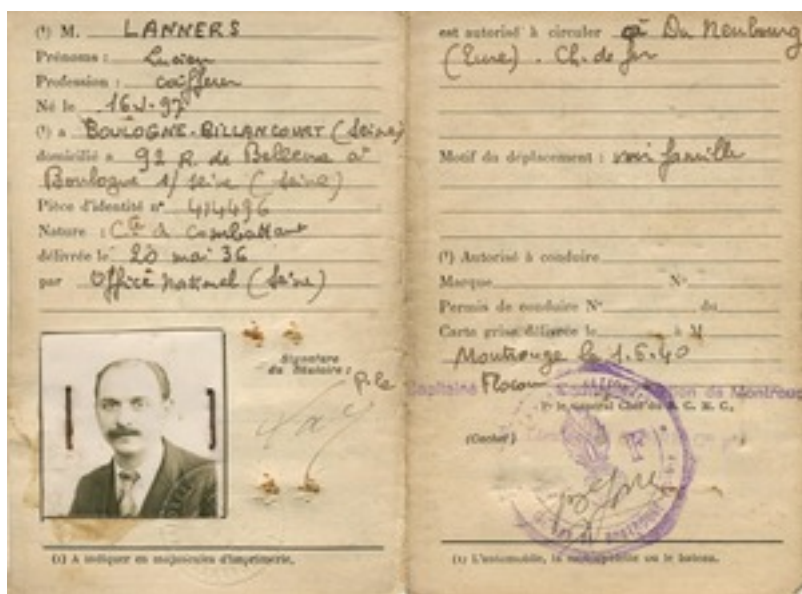 (1) M. LANNERS
Prénoms : Lucien
Profession : coiffeur
Né le 16-1-97
(1) a BOULOGNE-BILLANCOURT (Seine)
domicilié a 92 R. de Bellevue à
Boulogne s/ Seine (Seine)
Pièce d'identité n° 414496
Nature : Cte de Combattant
délivrée le 20 mai 36
par Office National (Seine)
Signature
du titulaire :
(1) A indiquer en majuscules d'imprimerie.
est autorisé à circuler à Du Neubourg
(Eure) . Ch. de fer
Motif du déplacement : voir famille
(1) Autorisé à conduire
Marque N°
Permis de conduire N° du
Carte grise délivrée le à M
Montrouge le 1.6.40
Capitaine Flocon de Montrouge
Pr le Général Chef du S. C. R. C,
(Cachet)
(1) L'automobile, la motocyclette ou le bateau.